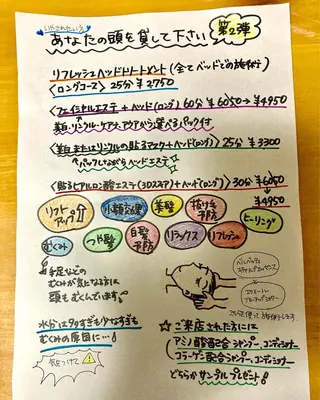 いやされたい人
あなたの頭を貸して下さい 第2弾
リフレッシュヘッドトリートメント (全てベッドでの施術)
<ロングコース> 25分 ¥2750
<フェイシャルエステ+ヘッド(ロング)> 60分 ¥6050→¥4950
美白・リンクル・ケア・アクアから選べるパック付
<美白またはリンクルの貼るマスク+ヘッド(ロング)> 25分 ¥3300
パックしながらヘッドエステ
<貼るヒアルロン酸エステ(3Dマスク)+ヘッド(ロング)> 30分 ¥6050
→¥4950
リフトアップ 小顔効果 美髪 抜け毛予防 ヒーリング
むくみ つや髪 白髪予防 リラックス リフレッシュ
手足などの
むくみが気になる方は
頭もむくんでいます!
水分は多すぎも少なすぎも
むくみの原因に…!
気をつけて
こちらを使って施術します
☆ご来店された方には
アミノ酸配合シャンプー、コンディショナー
コラーゲン配合シャンプー、コンディショナー
どちらかサンプルプレゼント!